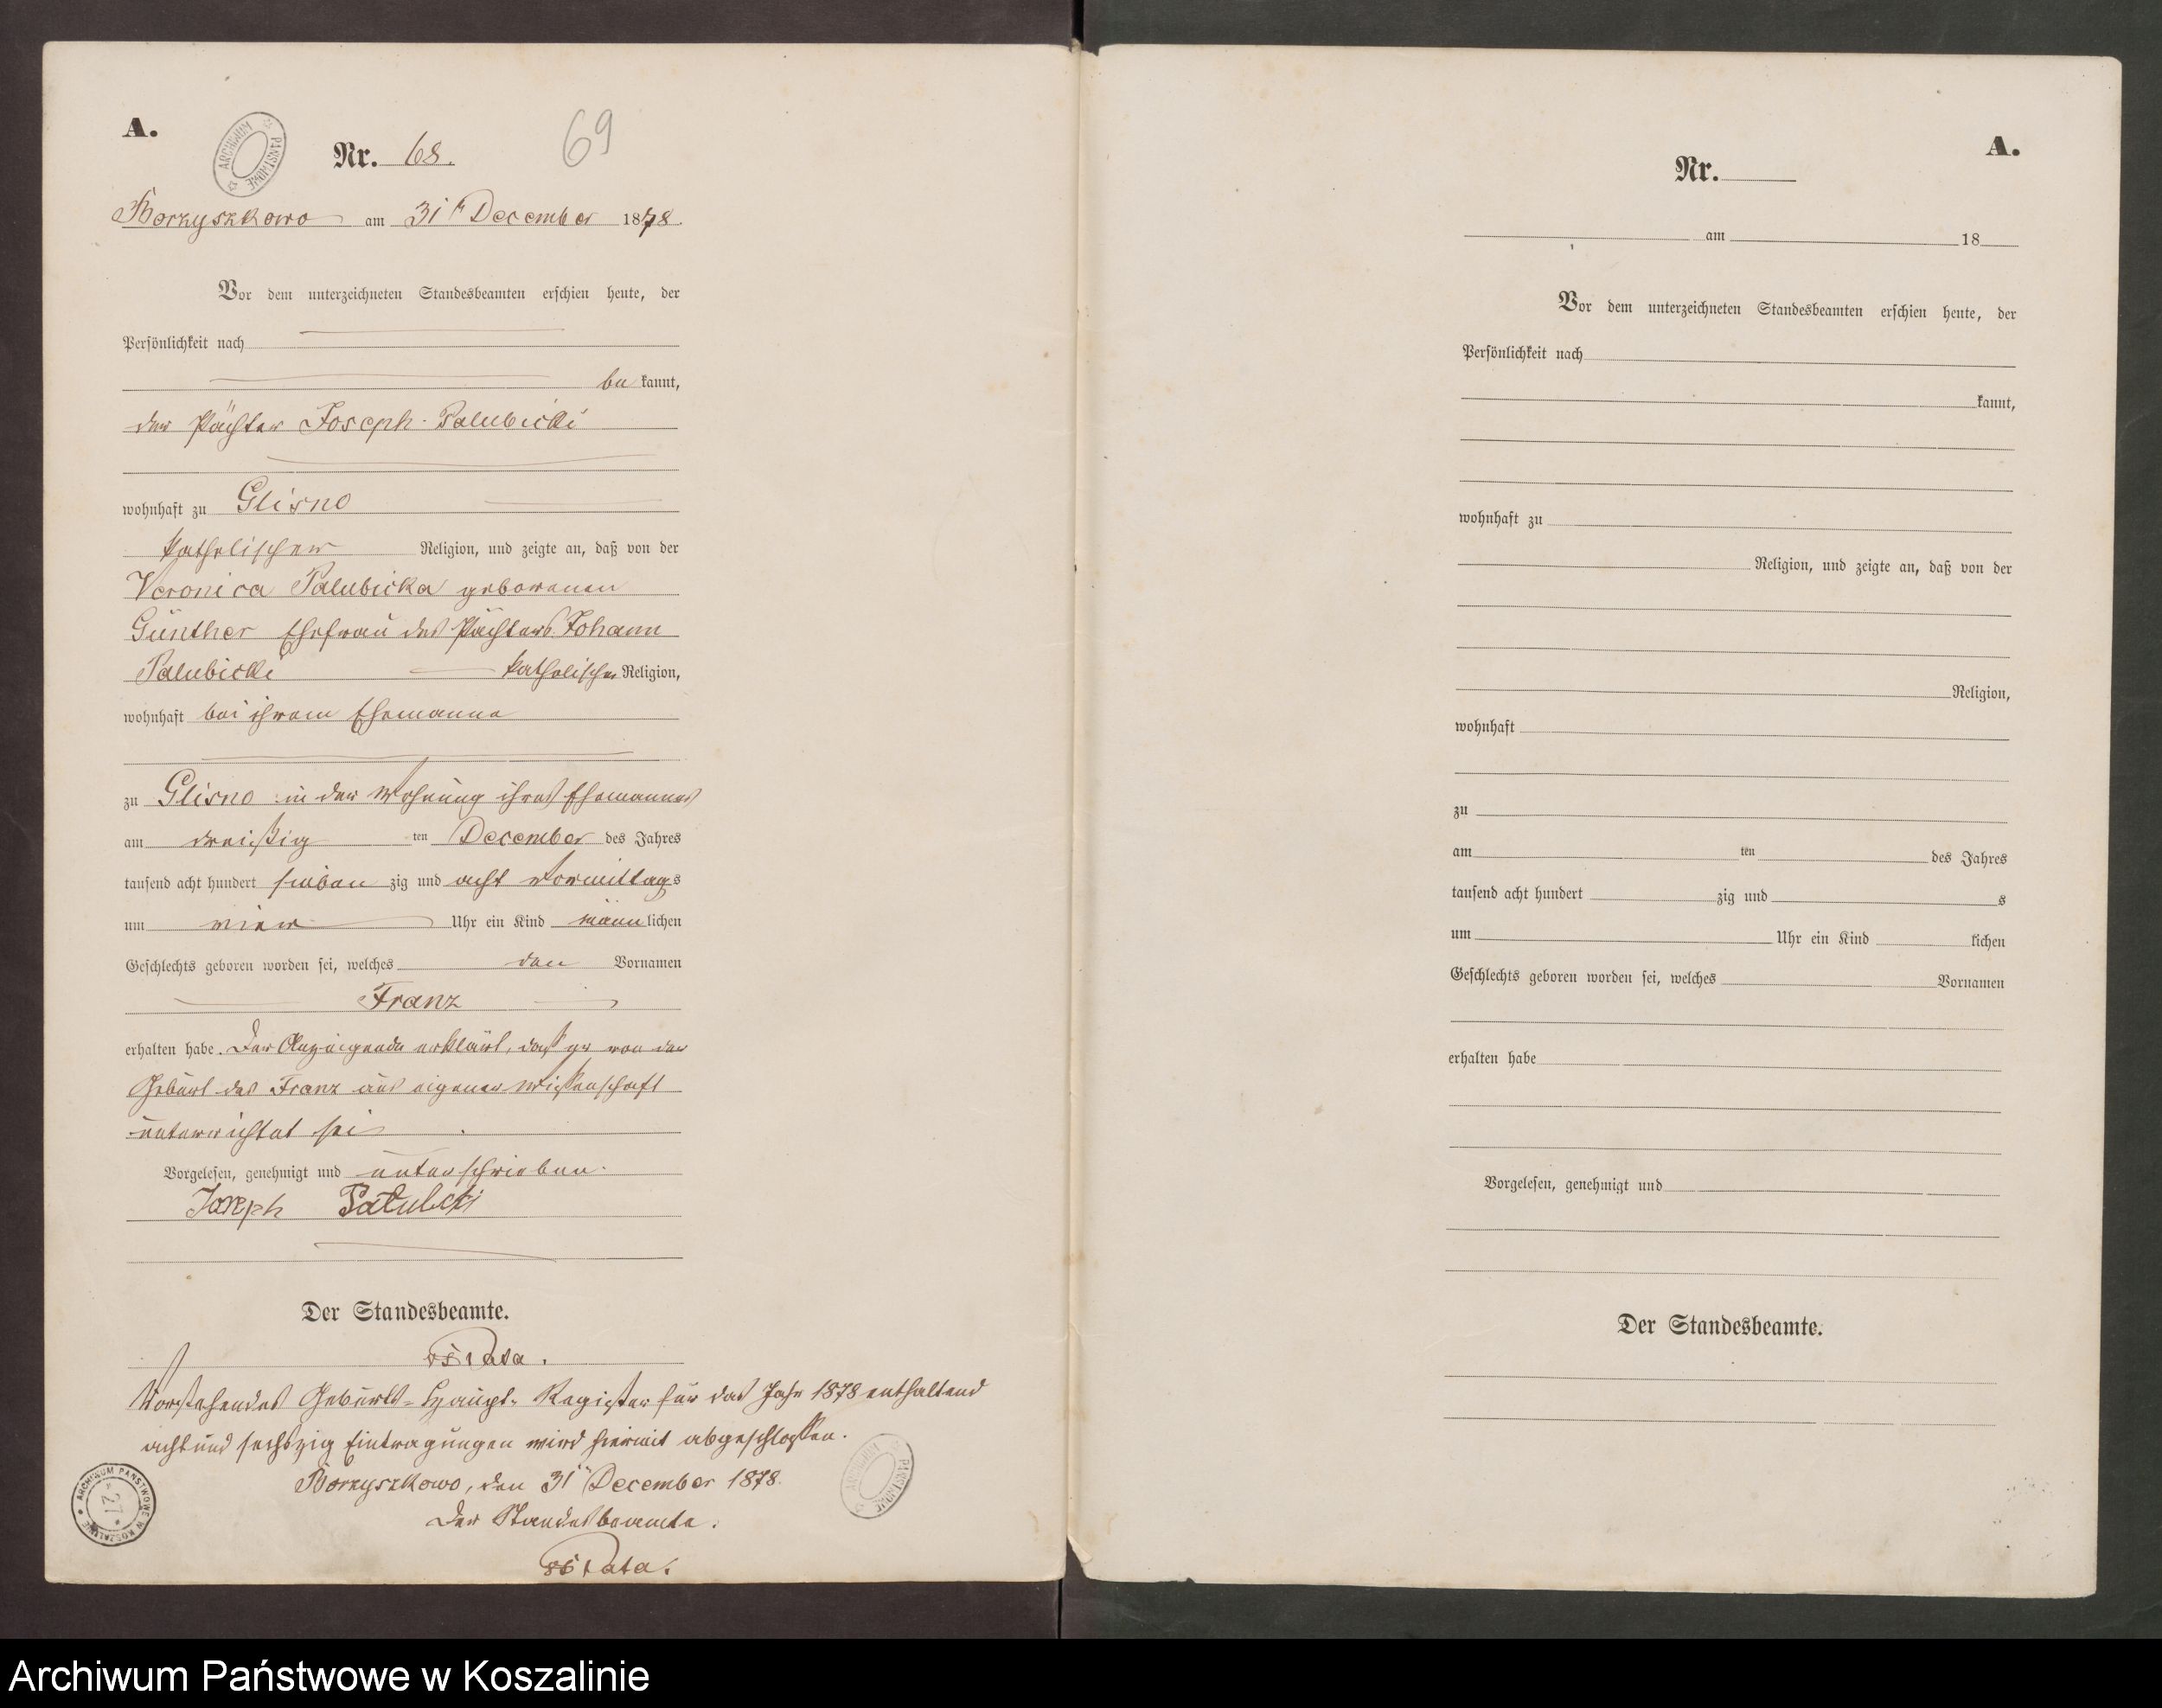 A.
ARCHIWUM PAŃSTWOWE
Nr. 68.
69
Borzyszkowo am 31ten December 1878.
Vor dem unterzeichneten Standesbeamten erschien heute, der
Persönlichkeit nach
be kannt,
der Pächter Joseph Palubicki
wohnhaft zu Glisno
katholischer Religion, und zeigte an, daß von der
Veronica Palubicka geborenen
Günther Ehefrau des Pächters Johann
Palubicki katholischer Religion,
wohnhaft bei ihrem Ehemanne
zu Glisno in der Wohnung ihres Ehemannes
am dreißig ten December des Jahres
tausend acht hundert sieben zig und acht Vormittags
um vier Uhr ein Kind männlichen
Geschlechts geboren worden sei, welches den Vornamen
Franz
erhalten habe. Der Anzeigende erklärt, daß er von der
Geburt des Franz aus eigener Wissenschaft
unterrichtet sei
Vorgelesen, genehmigt und unterschrieben.
Joseph Pałubicki
Der Standesbeamte.
Vorstehendes Geburts-Haupt-Register für das Jahr 1878 enthaltend
acht und sechszig Eintragungen wird hiermit abgeschlossen.
Borzyszkowo, den 31ten December 1878.
Der Standesbeamte.
ARCHIWUM PAŃSTWOWE W KOSZALINIE
27
ARCHIWUM PAŃSTWOWE
A.
Nr.
am 18
Vor dem unterzeichneten Standesbeamten erschien heute, der
Persönlichkeit nach
kannt,
wohnhaft zu
Religion, und zeigte an, daß von der
Religion,
wohnhaft
zu
am ten des Jahres
tausend acht hundert zig und s
um Uhr ein Kind lichen
Geschlechts geboren worden sei, welches Vornamen
erhalten habe
Vorgelesen, genehmigt und
Der Standesbeamte.
Archiwum Państwowe w Koszalinie